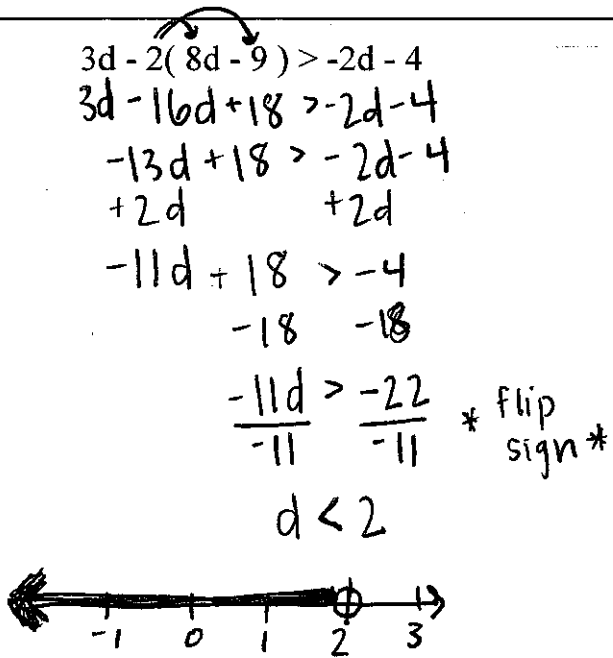 3d - 2( 8d - 9 ) > -2d - 4
3d - 16d + 18 > -2d - 4
-13d + 18 > -2d - 4
+2d +2d
-11d + 18 > -4
-18 -18
-11d > -22 * flip
-11 -11 sign *
d < 2
-1 0 1 2 3